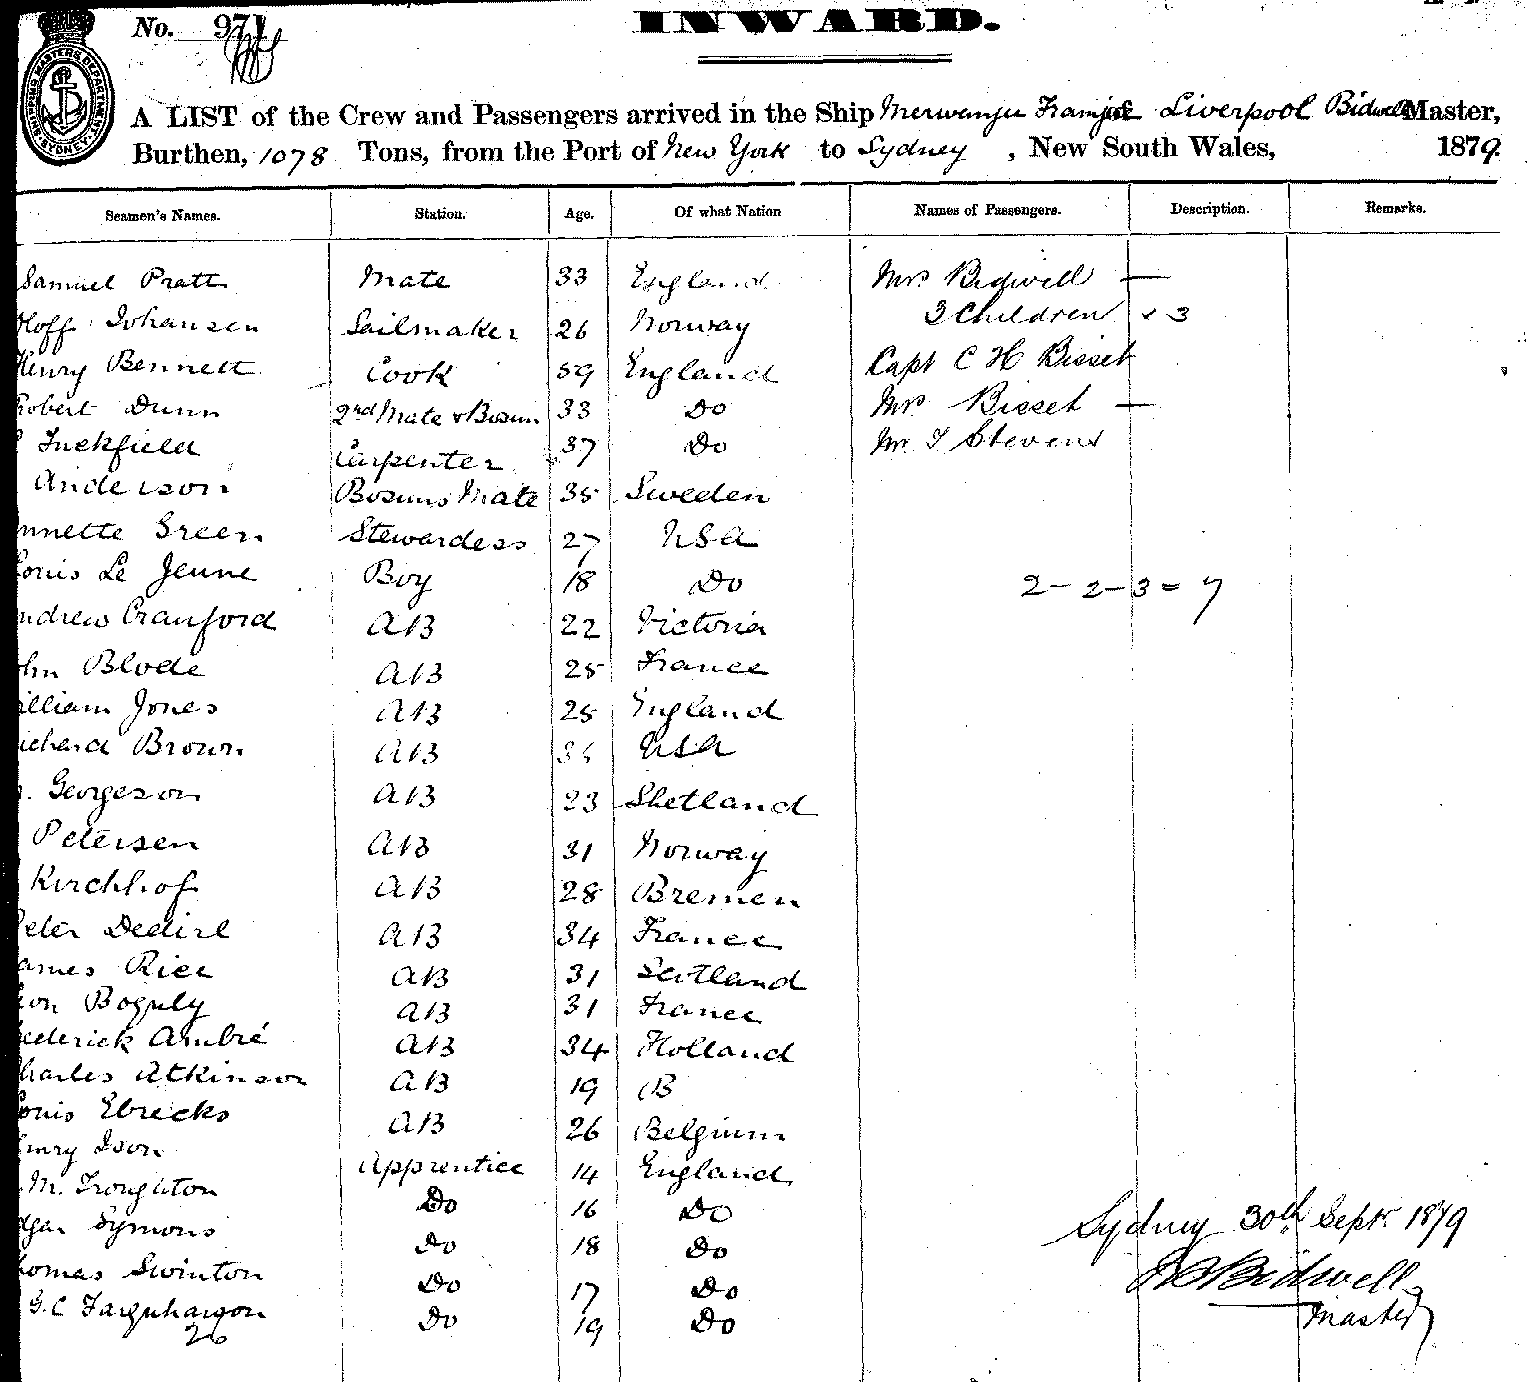 No. 971
INWARD.
SHIPPING MASTERS DEPARTMENT SYDNEY
A LIST of the Crew and Passengers arrived in the Ship Merwanjee Framjee Liverpool Bidwell Master,
Burthen, 1078 Tons, from the Port of New York to Sydney, New South Wales, 1879.
Seamen's Names. Station. Age. Of what Nation Names of Passengers. Description. Remarks.
Samuel Pratt Mate 33 England Mrs Bidwell —
Hoff Johansen Sailmaker 26 Norway 3 Children " 3
Henry Bennett Cook 59 England Capt C H Bisset
Robert Dunn 2nd Mate & Bosun 33 Do Mrs Bisset —
Tuckfield Carpenter 37 Do Mr T Stevens
Anderson Bosuns Mate 35 Sweden
nnette Green Stewardess 27 USA
Louis Le Jeune Boy 18 Do 2 - 2 - 3 = 7
ndrew Cranford AB 22 Victoria
ohn Blode AB 25 France
illiam Jones AB 25 England
ichard Brown AB USA
. Georgeson AB 23 Shetland
Petersen AB 31 Norway
Kirchhof AB 28 Bremen
Peter Dedire AB 34 France
ames Rice AB 31 Scotland
eon Boguly AB 31 France
rederick Ambré AB 34 Holland
harles Atkinson AB 19 B
Louis Ebrecks AB 26 Belgium
enry Ison Apprentice 14 England
M. Troughton Do 16 Do
dgar Symons Do 18 Do
homas Swinton Do 17 Do
G. C Farquharson Do 19 Do
26
Sydney 30th Sept. 1879
Bidwell
Master